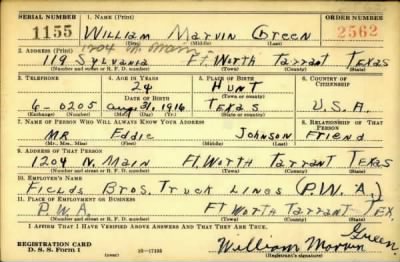 SERIAL NUMBER
1. NAME (Print)
ORDER NUMBER
1155
WILLIAM MARVIN GREEN
2562
(First) (Middle) (Last)
2. ADDRESS (Print)
1204 N. Main
119 SYLVANIA FT. WORTH TARRANT TEXAS
(Number and street or R. F. D. number) (Town) (County) (State)
3. TELEPHONE
4. AGE IN YEARS
5. PLACE OF BIRTH
6. COUNTRY OF CITIZENSHIP
24
HUNT
(Town or county)
6-0205
DATE OF BIRTH
Aug 31, 1916
TEXAS
U.S.A.
(Exchange) (Number)
(Mo.) (Day) (Yr.)
(State or country)
7. NAME OF PERSON WHO WILL ALWAYS KNOW YOUR ADDRESS
8. RELATIONSHIP OF THAT PERSON
MR. Eddie JOHNSON Friend
(Mr., Mrs., Miss) (First) (Middle) (Last)
9. ADDRESS OF THAT PERSON
1204 N. MAIN Ft. WORTH TARRANT TEXAS
(Number and street or R. F. D. number) (Town) (County) (State)
10. EMPLOYER'S NAME
FIELDS BROS. TRUCK LINES (P.W.A.)
11. PLACE OF EMPLOYMENT OR BUSINESS
P.W.A. FT WORTH TARRANT TEX.
(Number and street or R. F. D. number) (Town) (County) (State)
I AFFIRM THAT I HAVE VERIFIED ABOVE ANSWERS AND THAT THEY ARE TRUE.
REGISTRATION CARD
D. S. S. Form 1
(over)
William Marvin Green
(Registrant's signature)